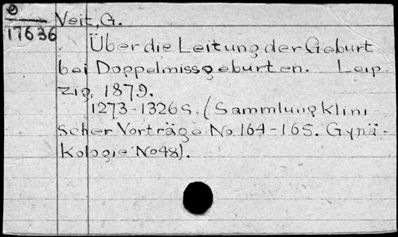 Veit, G.
17636
Über die Leitung der Geburt
bei Doppelmissgeburten. Leip
zig, 1879.
1273-1326 S. (Sammlung klini
scher Vorträge No 164-165. Gynä-
kologie No 48).